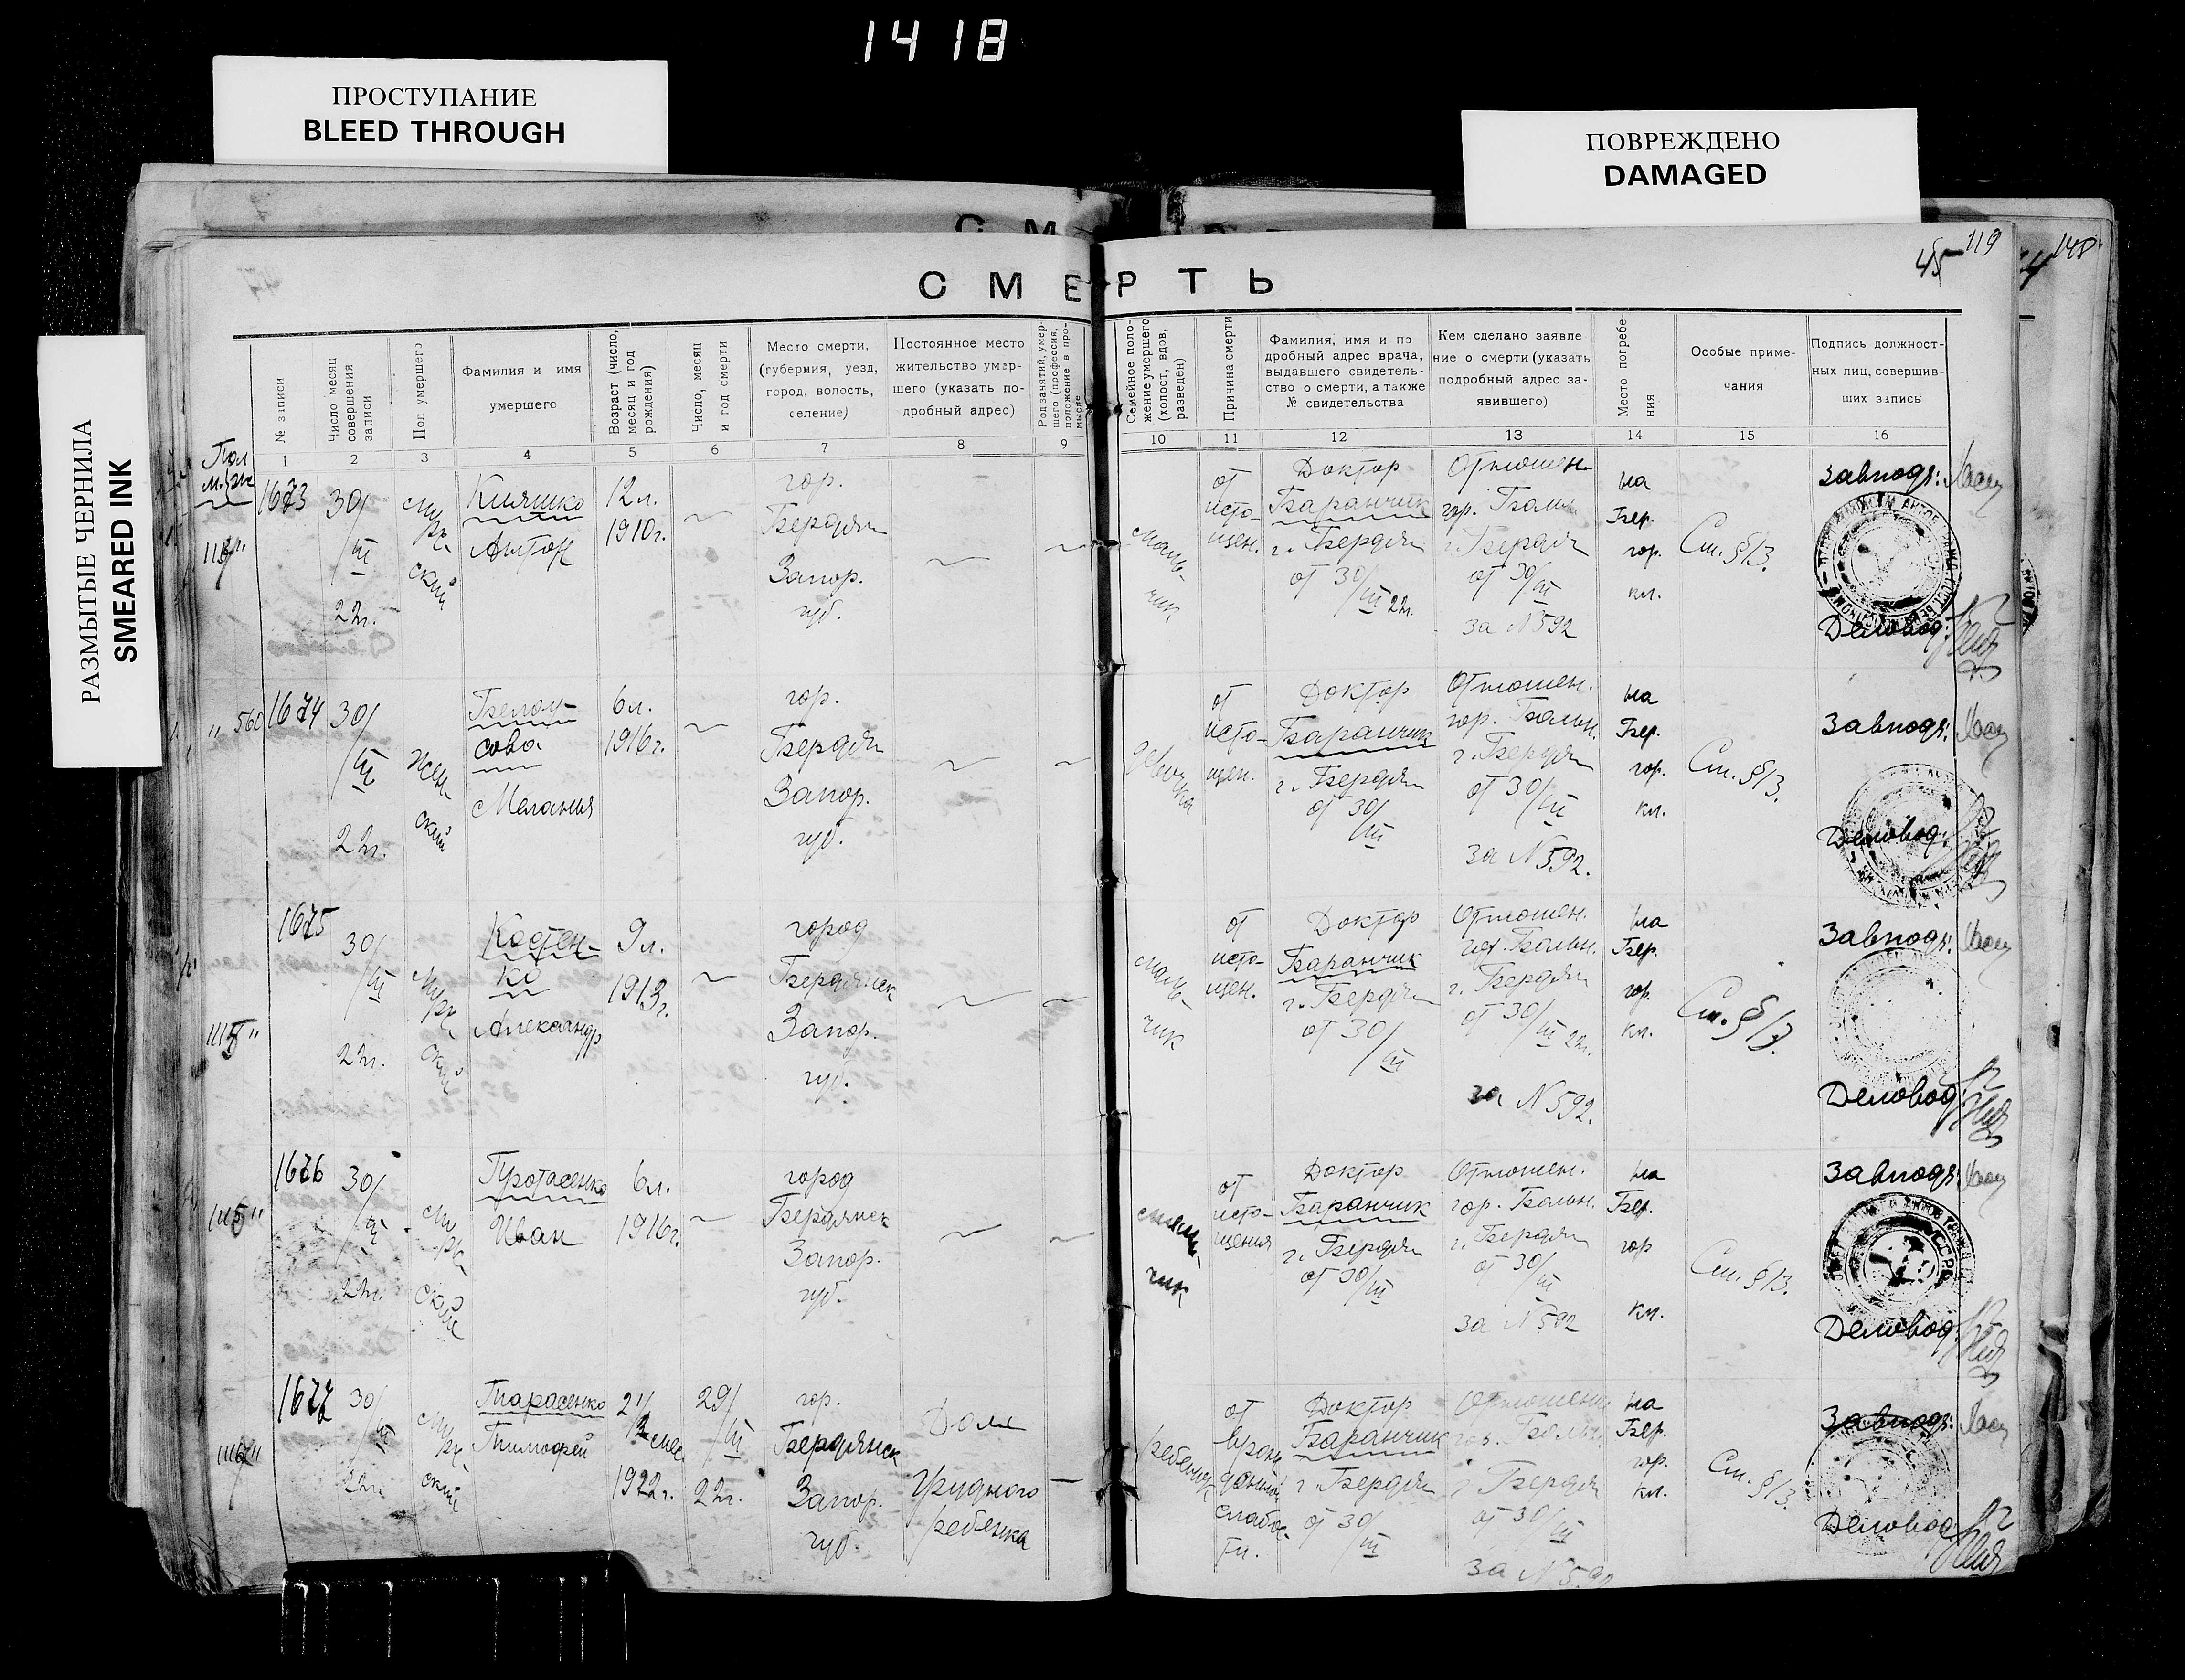 1418
ПРОСТУПАНИЕ
BLEED THROUGH
ПОВРЕЖДЕНО
DAMAGED
РАЗМЫТЫЕ ЧЕРНИЛА
SMEARED INK
45 119
148
СМЕРТЬ
№ записи
Число месяц
совершения
записи
Пол умершего
Фамилия и имя
умершего
Возраст (число,
месяц и год
рождения)
Число, месяц
и год смерти
Место смерти,
(губерния, уезд,
город, волость,
селение)
Постоянное место
жительство умер-
шего (указать по-
дробный адрес)
Род занятий, умер-
шего (профессия,
положение в про-
мысле
Семейное поло-
жение умершего
(холост, вдов,
разведен)
Причина смерти
Фамилия, имя и по
дробный адрес врача,
выдавшего свидетель-
ство о смерти, а также
№ свидетельства
Кем сделано заявле
ние о смерти (указать
подробный адрес за-
явившего)
Место погребе-
ния
Особые приме-
чания
Подпись должност-
ных лиц, совершив-
ших запись
1 2 3 4 5 6 7 8 9 10 11 12 13 14 15 16
Пол
1673
30/
III
22г.
Муж-
ский
Кияшко
Антон
12л.
1910г.
гор.
Бердян
Запор.
губ.
Маль-
чик
от
исто-
щен.
Доктор
Баранчик
г. Бердян
от 30/
III 22г.
Отношен.
гор. Больн
г. Бердян
от 30/III
за N592
на
Бер.
гор.
кл.
См. §13.
Завподз:
Деловод:
560
1674
30/
III
22г.
Жен-
ский
Белоу-
сова
Мелания
6л.
1916г.
гор.
Бердян
Запор.
губ.
девочка
от
исто-
щен.
Доктор
Баранчик
г. Бердян
от 30/
III
Отношен.
гор. Больн.
г. Бердян
от 30/III
за N592.
на
Бер.
гор.
кл.
См. §13.
Завподз:
Деловод:
1675
30/
III
22г.
Муж-
ский
Костен-
ко
Александр
9л.
1913г.
город
Бердянск
Запор.
губ.
маль-
чик
от
исто-
щен.
Доктор
Баранчик
г. Бердян
от 30/
III
Отношен.
гор. Больн.
г. Бердян
от 30/
III 22г.
за N592.
на
Бер.
гор.
кл.
См. §13.
Завподз:
Деловод:
1676
30/
III
22г.
Муж-
ской
Протасенко
Иван
6л.
1916г.
город
Бердянск
Запор.
губ.
маль-
чик
от
исто-
щения
Доктор
Баранчик
г. Бердян
от 30/III
Отношен.
гор. Больн.
г. Бердян
от 30/
III
за N592
на
Бер.
гор
кл.
См. §13.
Завподз:
Деловод:
1677
30/
III
22г.
Муж-
ский
Тарасенко
Тимофей
1922г.
29/
III
22г.
гор.
Бердянск
Запор.
губ.
Дом
Грудного
ребенка
ребенок
от
врож-
денной
слабос-
ти.
Доктор
Баранчик
г Бердян
от 30/
III
Отношени
гор. Больн.
г Бердян
от 30/
III
на
Бер.
гор.
кл.
См. §13.
Завподз:
Деловод: